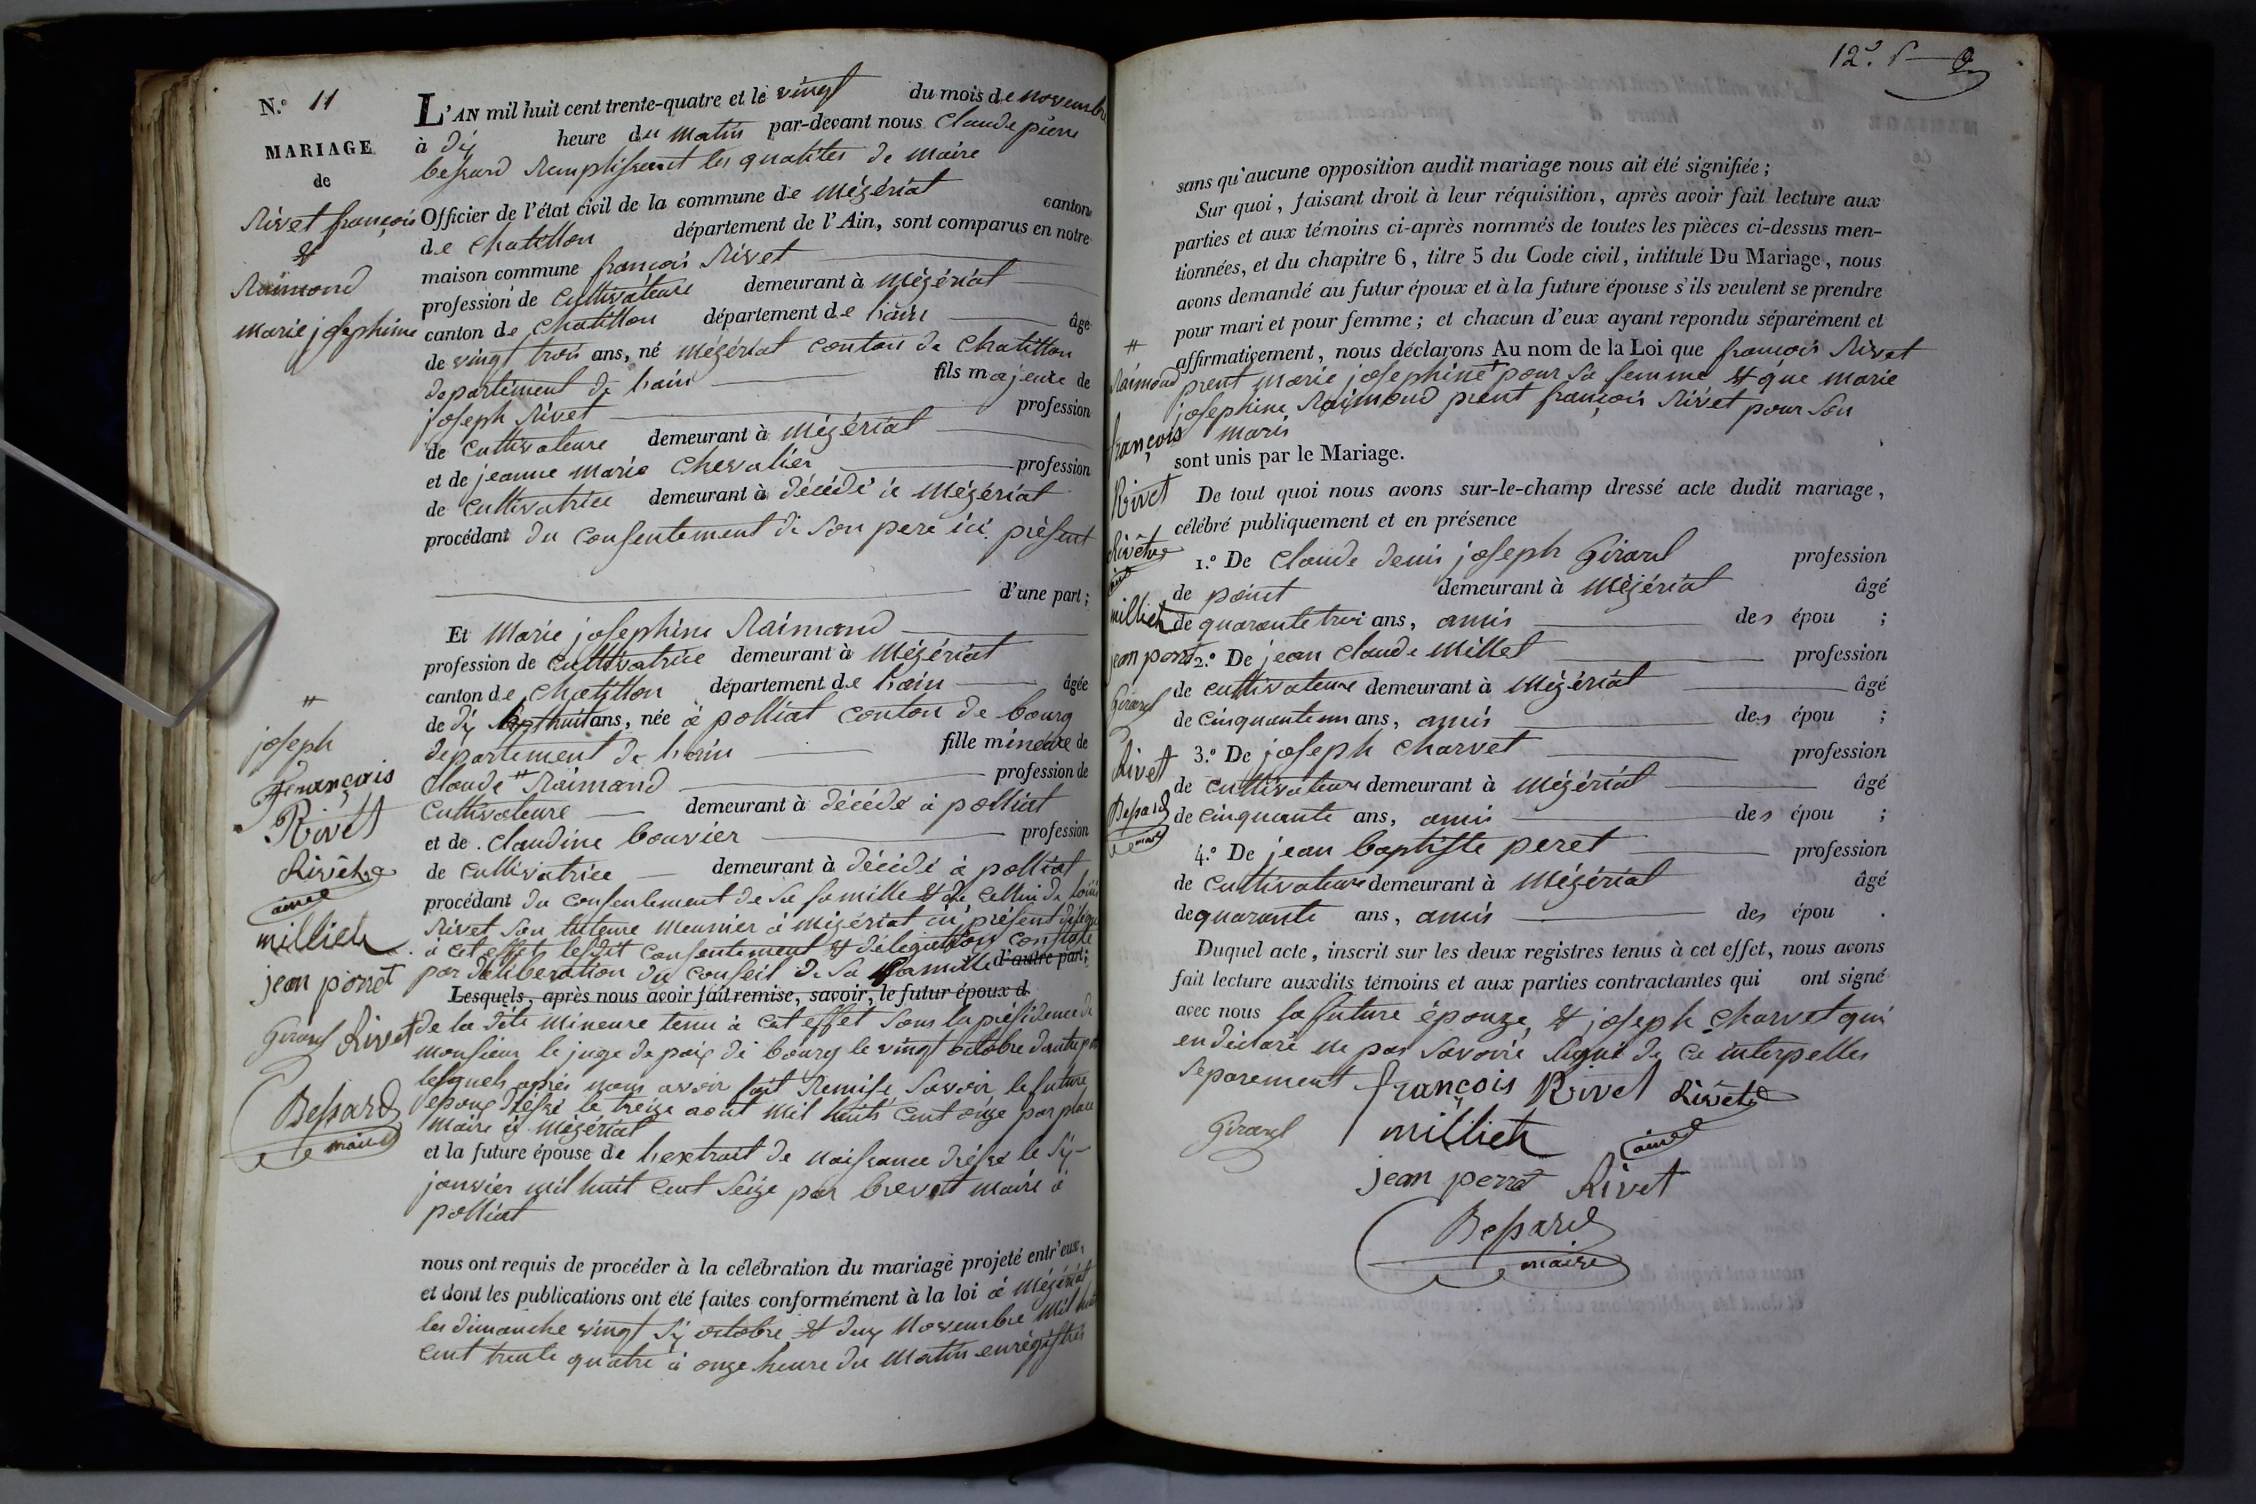 N.° 11
MARIAGE
de
Rivet françois
et
Raimond
marie josephine
L'AN mil huit cent trente-quatre et le vingt du mois de novembre
à dix heure du matin par-devant nous Claude pierre
bessard remplissant les qualités de maire
Officier de l'état civil de la commune de mézériat canton
de chatillon département de l'Ain, sont comparus en notre
maison commune françois Rivet
profession de cultivateure demeurant à mézériat
canton de chatillon département de l'ain âgé
de vingt trois ans, né mézériat conton de chatillon
département de l'ain fils majeure de
joseph Rivet profession
de cultivateure demeurant à mézériat
et de jeanne marie chevalier profession
de cultivatrice demeurant à décédé à mézériat
procédant du consentement de son pere ici présent
d'une part ;
Et marie josephine Raimond
profession de cultivatrice demeurant à mézériat
canton de chatillon département de l'ain âgée
de dix huit ans, née à polliat conton de bourg
département de l'ain fille mineure de
claude # Raimond profession de
cultivateure demeurant à décédé à polliat
et de claudine bouvier profession
de cultivatrice demeurant à décédé à polliat
procédant du consentement de sa famille et de cellui de louis
Rivet son tuteure meunier à mézériat ici présent délégué
à cet effet lesdit consentement et délégation constaté
par déliberation du conseil de sa famille d'autre part ;
Lesquels, après nous avoir fait remise, savoir, le futur époux d
de la dite mineure tenu à cet effet sous la présidence de
monsieur le juge de paix de bourg le vingt octobre d'autre part
lesquels après nous avoir fait remise savoir le future
epoux dréssé le treize août mil huit cent onze par place
maire à mézériat
et la future épouse de l'extrait de naissance dréssé le six
janvier mil huit cent seize par brevet maire à
polliat
nous ont requis de procéder à la célébration du mariage projeté entr'eux,
et dont les publications ont été faites conformément à la loi à mézériat
les dimanche vingt six octobre et deux novembre mil huit
cent trente quatre à onze heure du matin enrégistrés
#
joseph
François
Rivet
Rivet
ainé
milliet
jean perret
Girard Rivet
Bessard
maire
12.e
sans qu'aucune opposition audit mariage nous ait été signifiée ;
Sur quoi, faisant droit à leur réquisition, après avoir fait lecture aux
parties et aux témoins ci-après nommés de toutes les pièces ci-dessus men-
tionnées, et du chapitre 6, titre 5 du Code civil, intitulé Du Mariage, nous
avons demandé au futur époux et à la future épouse s'ils veulent se prendre
pour mari et pour femme ; et chacun d'eux ayant répondu séparément et
affirmativement, nous déclarons Au nom de la Loi que françois Rivet
prent marie josephine # pour sa femme et que marie
josephine Raimond prent françois Rivet pour son
maris
sont unis par le Mariage.
De tout quoi nous avons sur-le-champ dressé acte dudit mariage,
célébré publiquement et en présence
1.° De claude denis joseph Girard profession
de demeurant à mézériat âgé
de quarante troi ans, amis des épou ;
2.° De jean claude millet profession
de cultivateure demeurant à mézériat âgé
de cinquante un ans, amis des épou ;
3.° De joseph charvet profession
de cultivateure demeurant à mézériat âgé
de cinquante ans, amis des épou ;
4.° De jean baptiste peret profession
de cultivateure demeurant à mézériat âgé
de quarante ans, amis des épou .
Duquel acte, inscrit sur les deux registres tenus à cet effet, nous avons
fait lecture auxdits témoins et aux parties contractantes qui ont signé
avec nous la future épouze, et joseph charvet qui
en déclaré ne pas savoire signé de ce interpellés
séparement françois Rivet Rivet
ainé
Girard milliet
jean perret Rivet
Bessard
maire
#
Raimond
françois
Rivet
Rivet
ainé
milliet
jean perret
Girard
Rivet
Bessard
maire